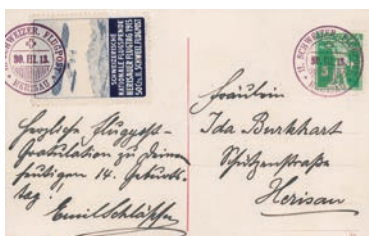 II. SCHWEIZER. FLUGPOST
30. III. 13.
HERISAU
SCHWEIZERISCHE
NATIONALE FLUGSPENDE
HERISAUER FLUGTAG 1913
50 Cts.
II. SCHWEIZER. FLUGPOST
30. III. 13.
HERISAU
5
Herzliche Flugpost-
Gratulation zu Deinem
heutigen 14. Geburts-
tag!
Emil Schläpfer
Fräulein
Ida Burkhart
Schützenstraße
Herisau